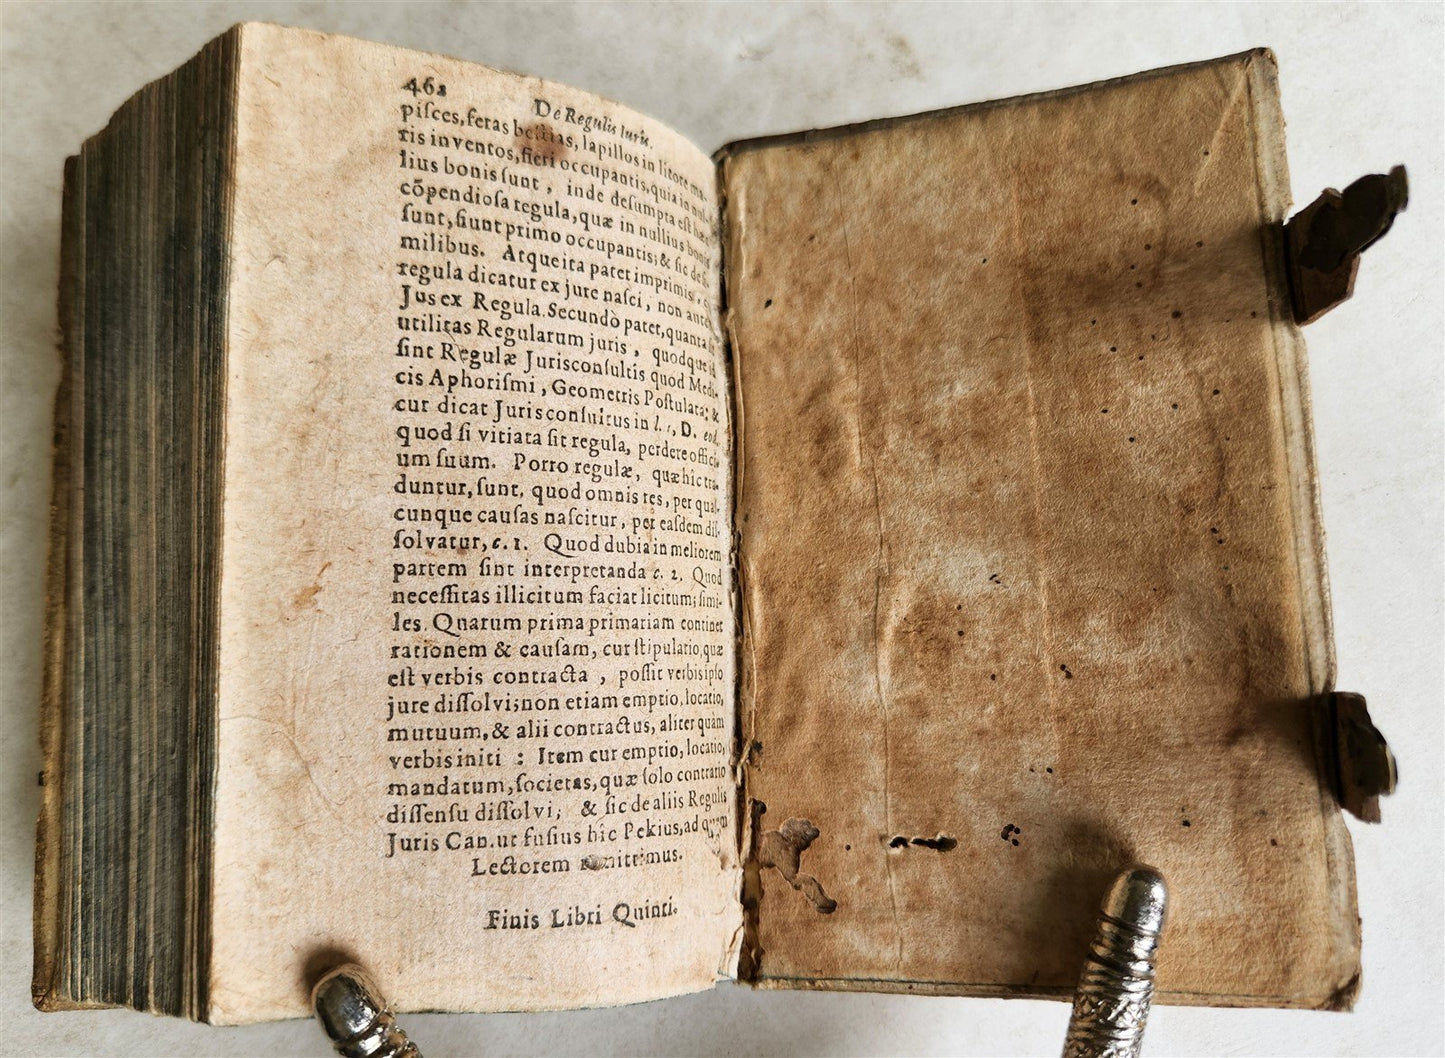 462 De Regulis Iuris.
pisces, feras bestias, lapillos in litore ma-
ris inventos, fieri occupantis, quia in nul-
lius bonis sunt, inde desumpta est hæc
cõpendiosa regula, quæ in nullius bonis
sunt, fiunt primo occupantis; & sic de si-
milibus. Atque ita patet imprimis,
regula dicatur ex jure nasci, non autem
Jus ex Regula. Secundò patet, quanta sit
utilitas Regularum juris, quodque id
sint Regulæ Jurisconsultis quod Medi-
cis Aphorismi, Geometris Postulata: &
cur dicat Jurisconsultus in l. 1, D. eod.
quod si vitiata sit regula, perdere offici-
um suum. Porro regulæ, quæ hîc tra-
duntur, sunt, quod omnis res, per quas-
cunque causas nascitur, per easdem dis-
solvatur, c. 1. Quod dubia in meliorem
partem sint interpretanda c. 2. Quod
necessitas illicitum faciat licitum; simi-
les. Quarum prima primariam continet
rationem & causam, cur stipulatio, quæ
est verbis contracta, possit verbis ipso
jure dissolvi; non etiam emptio, locatio,
mutuum, & alii contractus, aliter quàm
verbis initi : Item cur emptio, locatio,
mandatum, societas, quæ solo contrario
dissensu dissolvi; & sic de aliis Regulis
Juris Can. ut fusius hîc Pekius, ad quem
Lectorem remittimus.
Finis Libri Quinti.